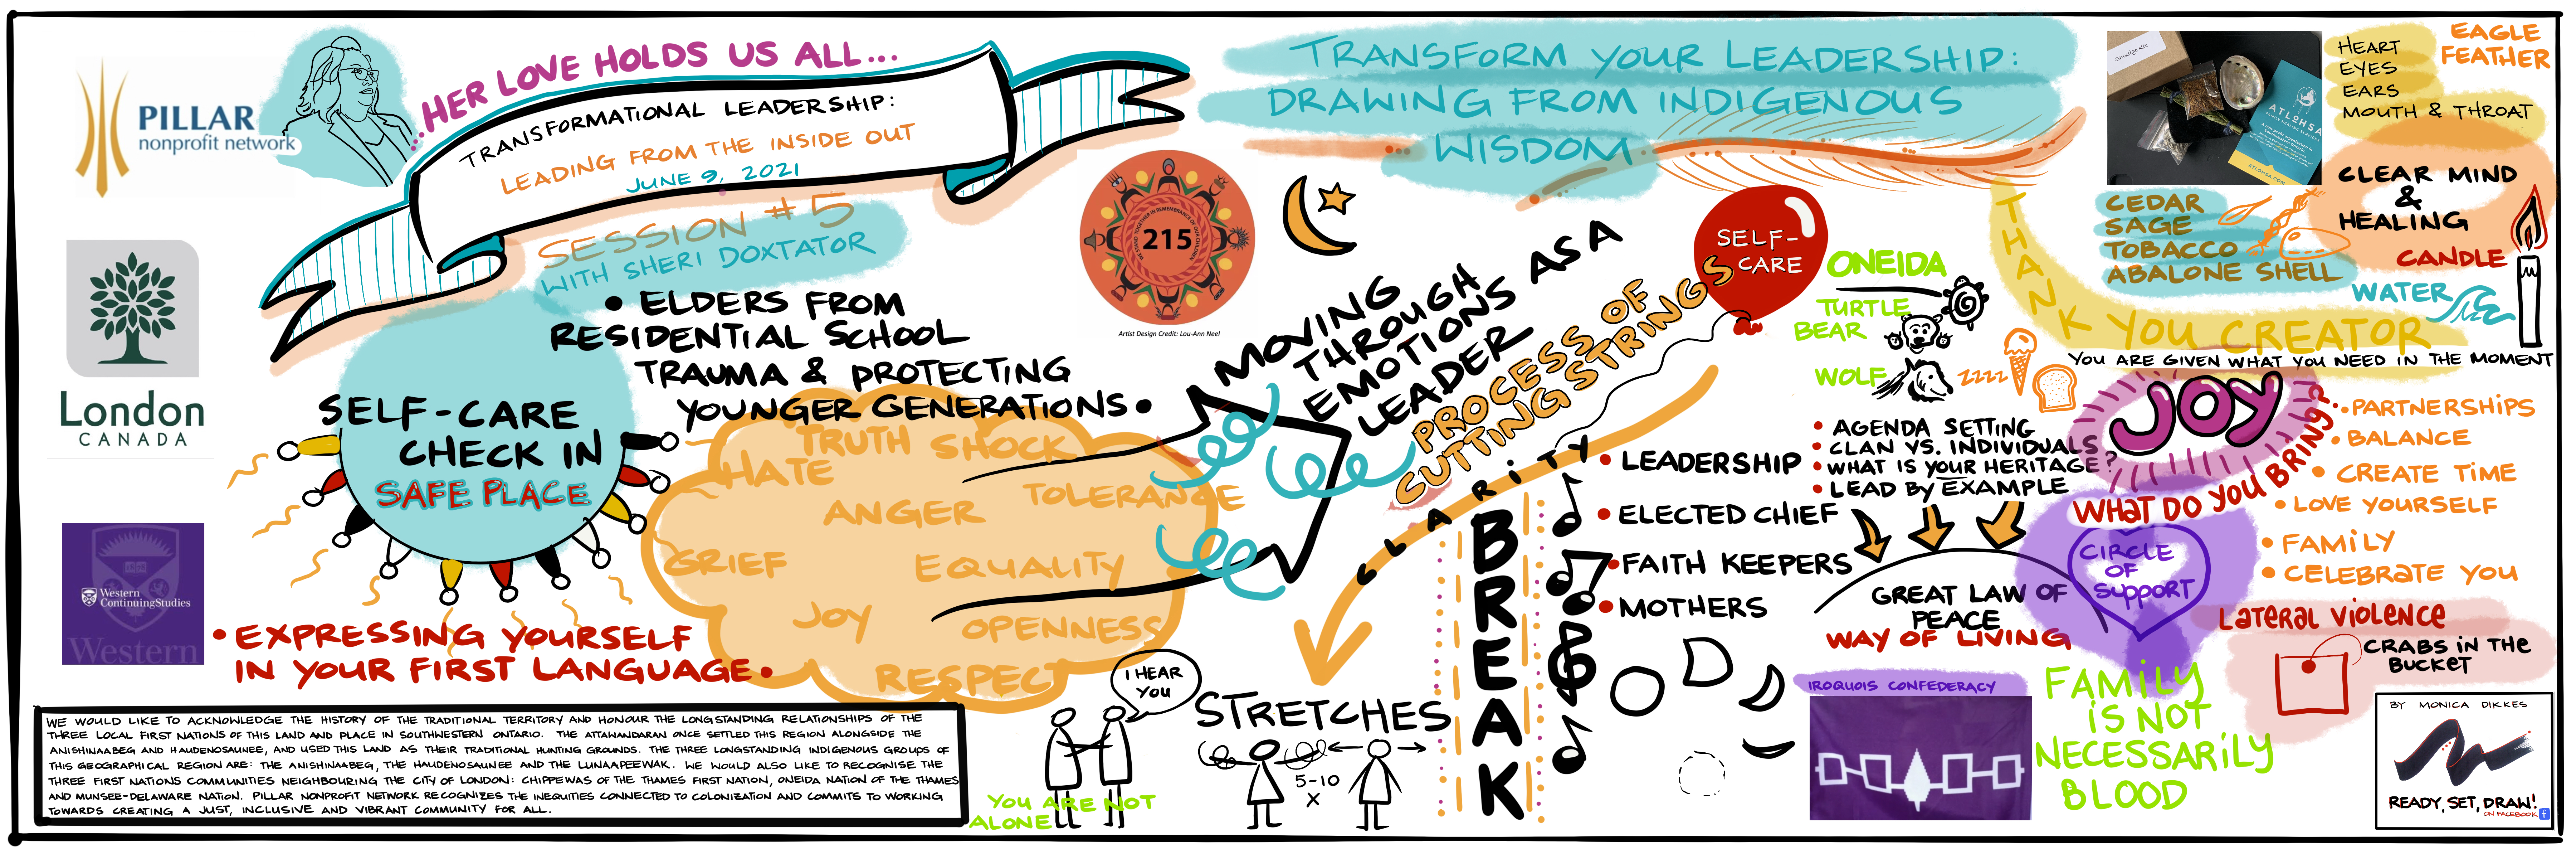 PILLAR
nonprofit network
London
CANADA
Western
ContinuingStudies
Western
HER LOVE HOLDS US ALL...
TRANSFORMATIONAL LEADERSHIP:
LEADING FROM THE INSIDE OUT
JUNE 9, 2021
SESSION #5
WITH SHERI DOXTATOR
• ELDERS FROM
RESIDENTIAL SCHOOL
TRAUMA & PROTECTING
YOUNGER GENERATIONS •
SELF-CARE
CHECK IN
SAFE PLACE
• EXPRESSING YOURSELF
IN YOUR FIRST LANGUAGE •
TRUTH SHOCK
HATE
TOLERANCE
ANGER
GRIEF
EQUALITY
JOY
OPENNESS
RESPECT
WE WOULD LIKE TO ACKNOWLEDGE THE HISTORY OF THE TRADITIONAL TERRITORY AND HONOUR THE LONGSTANDING RELATIONSHIPS OF THE
THREE LOCAL FIRST NATIONS OF THIS LAND AND PLACE IN SOUTHWESTERN ONTARIO. THE ATTAWANDARAN ONCE SETTLED THIS REGION ALONGSIDE THE
ANISHINAABEG AND HAUDENOSAUNEE, AND USED THIS LAND AS THEIR TRADITIONAL HUNTING GROUNDS. THE THREE LONGSTANDING INDIGENOUS GROUPS OF
THIS GEOGRAPHICAL REGION ARE: THE ANISHINAABEG, THE HAUDENOSAUNEE AND THE LUNAAPEEWAK. WE WOULD ALSO LIKE TO RECOGNISE THE
THREE FIRST NATIONS COMMUNITIES NEIGHBOURING THE CITY OF LONDON: CHIPPEWAS OF THE THAMES FIRST NATION, ONEIDA NATION OF THE THAMES
AND MUNSEE-DELAWARE NATION. PILLAR NONPROFIT NETWORK RECOGNIZES THE INEQUITIES CONNECTED TO COLONIZATION AND COMMITS TO WORKING
TOWARDS CREATING A JUST, INCLUSIVE AND VIBRANT COMMUNITY FOR ALL.
I HEAR
YOU
YOU ARE NOT
ALONE
TRANSFORM YOUR LEADERSHIP:
DRAWING FROM INDIGENOUS
WISDOM
WE STAND TOGETHER IN REMEMBRANCE OF OUR CHILDREN
215
Artist Design Credit: Lou-Ann Neel
MOVING
THROUGH
EMOTIONS AS A
LEADER
PROCESS OF
CUTTING STRINGS
SELF-
CARE
CLARITY
STRETCHES
5-10
X
BREAK
ONEIDA
TURTLE
BEAR
WOLF
ZZZZ
• LEADERSHIP
• ELECTED CHIEF
• FAITH KEEPERS
• MOTHERS
• AGENDA SETTING
• CLAN VS. INDIVIDUALS
• WHAT IS YOUR HERITAGE?
• LEAD BY EXAMPLE
GREAT LAW OF
PEACE
WAY OF LIVING
IROQUOIS CONFEDERACY
Smudge Kit
ATLOHSA
FAMILY HEALING SERVICES
ATLOHSA.COM
HEART
EYES
EARS
MOUTH & THROAT
EAGLE
FEATHER
CLEAR MIND
&
HEALING
CEDAR
SAGE
TOBACCO
ABALONE SHELL
CANDLE
WATER
THANK YOU CREATOR
YOU ARE GIVEN WHAT YOU NEED IN THE MOMENT
JOY
WHAT DO YOU BRING?
• PARTNERSHIPS
• BALANCE
• CREATE TIME
• LOVE YOURSELF
• FAMILY
• CELEBRATE YOU
CIRCLE
OF
SUPPORT
LATERAL VIOLENCE
CRABS IN THE
BUCKET
FAMILY
IS NOT
NECESSARILY
BLOOD
BY MONICA DIKKES
READY, SET, DRAW!
ON FACEBOOK f